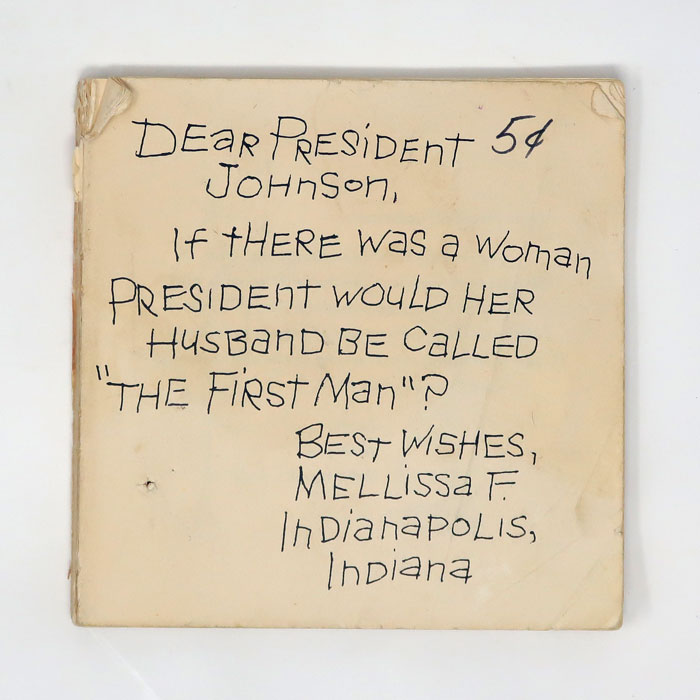 DEar PRESiDEnt 5¢
JOHnSon,
If tHERE was a woman
PRESIDEnt woULD HER
HusBanD BE CaLLED
"THE FiRSt Man"?
BESt WiSHES,
MELLissa F.
InDianaPOLIS,
InDiana